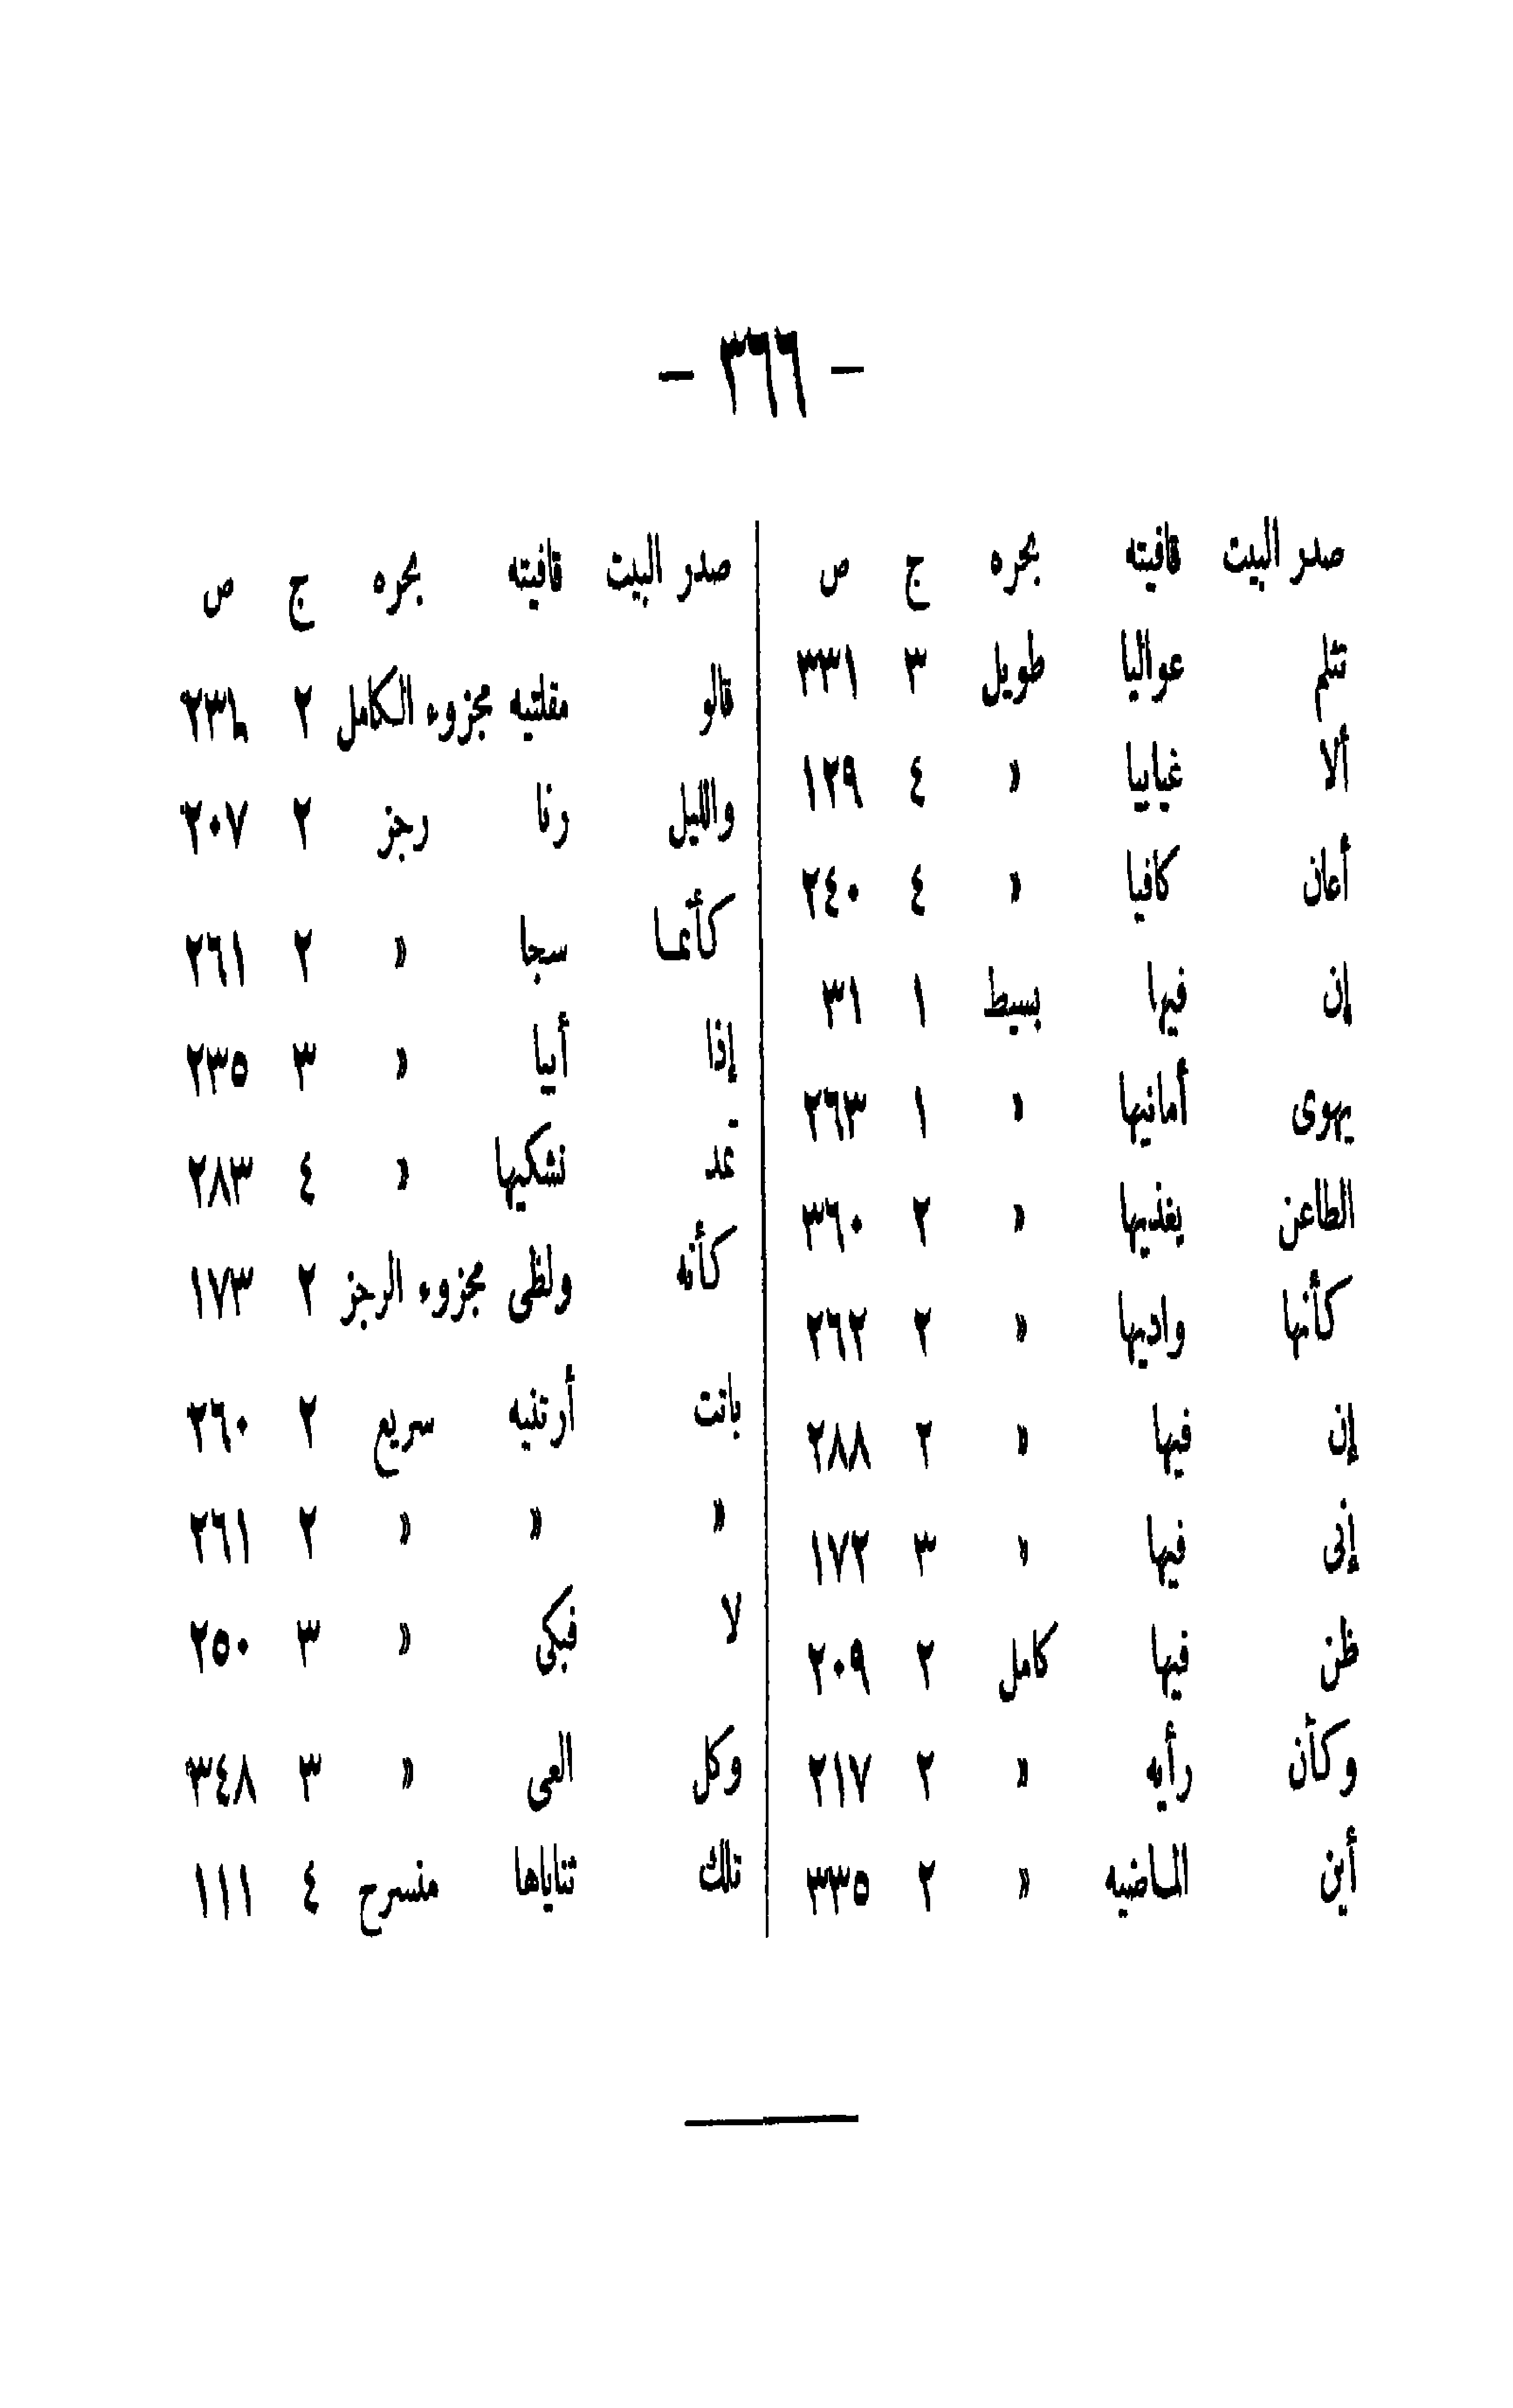 — ٣٦٦ —
صدر البيت قافيته بحره ج ص
تثلم عواليا طويل ٣ ٣٣١
ألا غيابيا » ٤ ١٢٩
أعان كافيا » ٤ ٢٤٠
إن فيها بسيط ١ ٣١
يهوى أمانيها » ١ ٢٦٣
الطاعن يغذيها » ٢ ٣٦٠
كأنها واديها » ٢ ٢٦٢
إن فيها » ٢ ٢٨٨
إنى فيها » ٣ ١٧٢
ظن فيها كامل ٢ ٢٠٩
وكأن رأيه » ٢ ٢١٧
أين الماضيه » ٢ ٣٣٥
صدر البيت قافيته بحره ج ص
قالو مقلتيه مجزوء الكامل ٢
والليل رنا رجز ٢ ٢٠٧
كأنما سجا » ٢ ٢٦١
إذا أبيا » ٣ ٢٣٥
تمد نشكيها » ٤ ٢٨٣
كأنه ولظى مجزوء الرجز ٢ ١٧٣
بانت أرتنيه سريع ٢ ٢٦٠
» » » ٢ ٢٦١
لا فبكى » ٣ ٢٥٠
وكل العى » ٣ ٣٤٨
تلك ثناياها منسرح ٤ ١١١